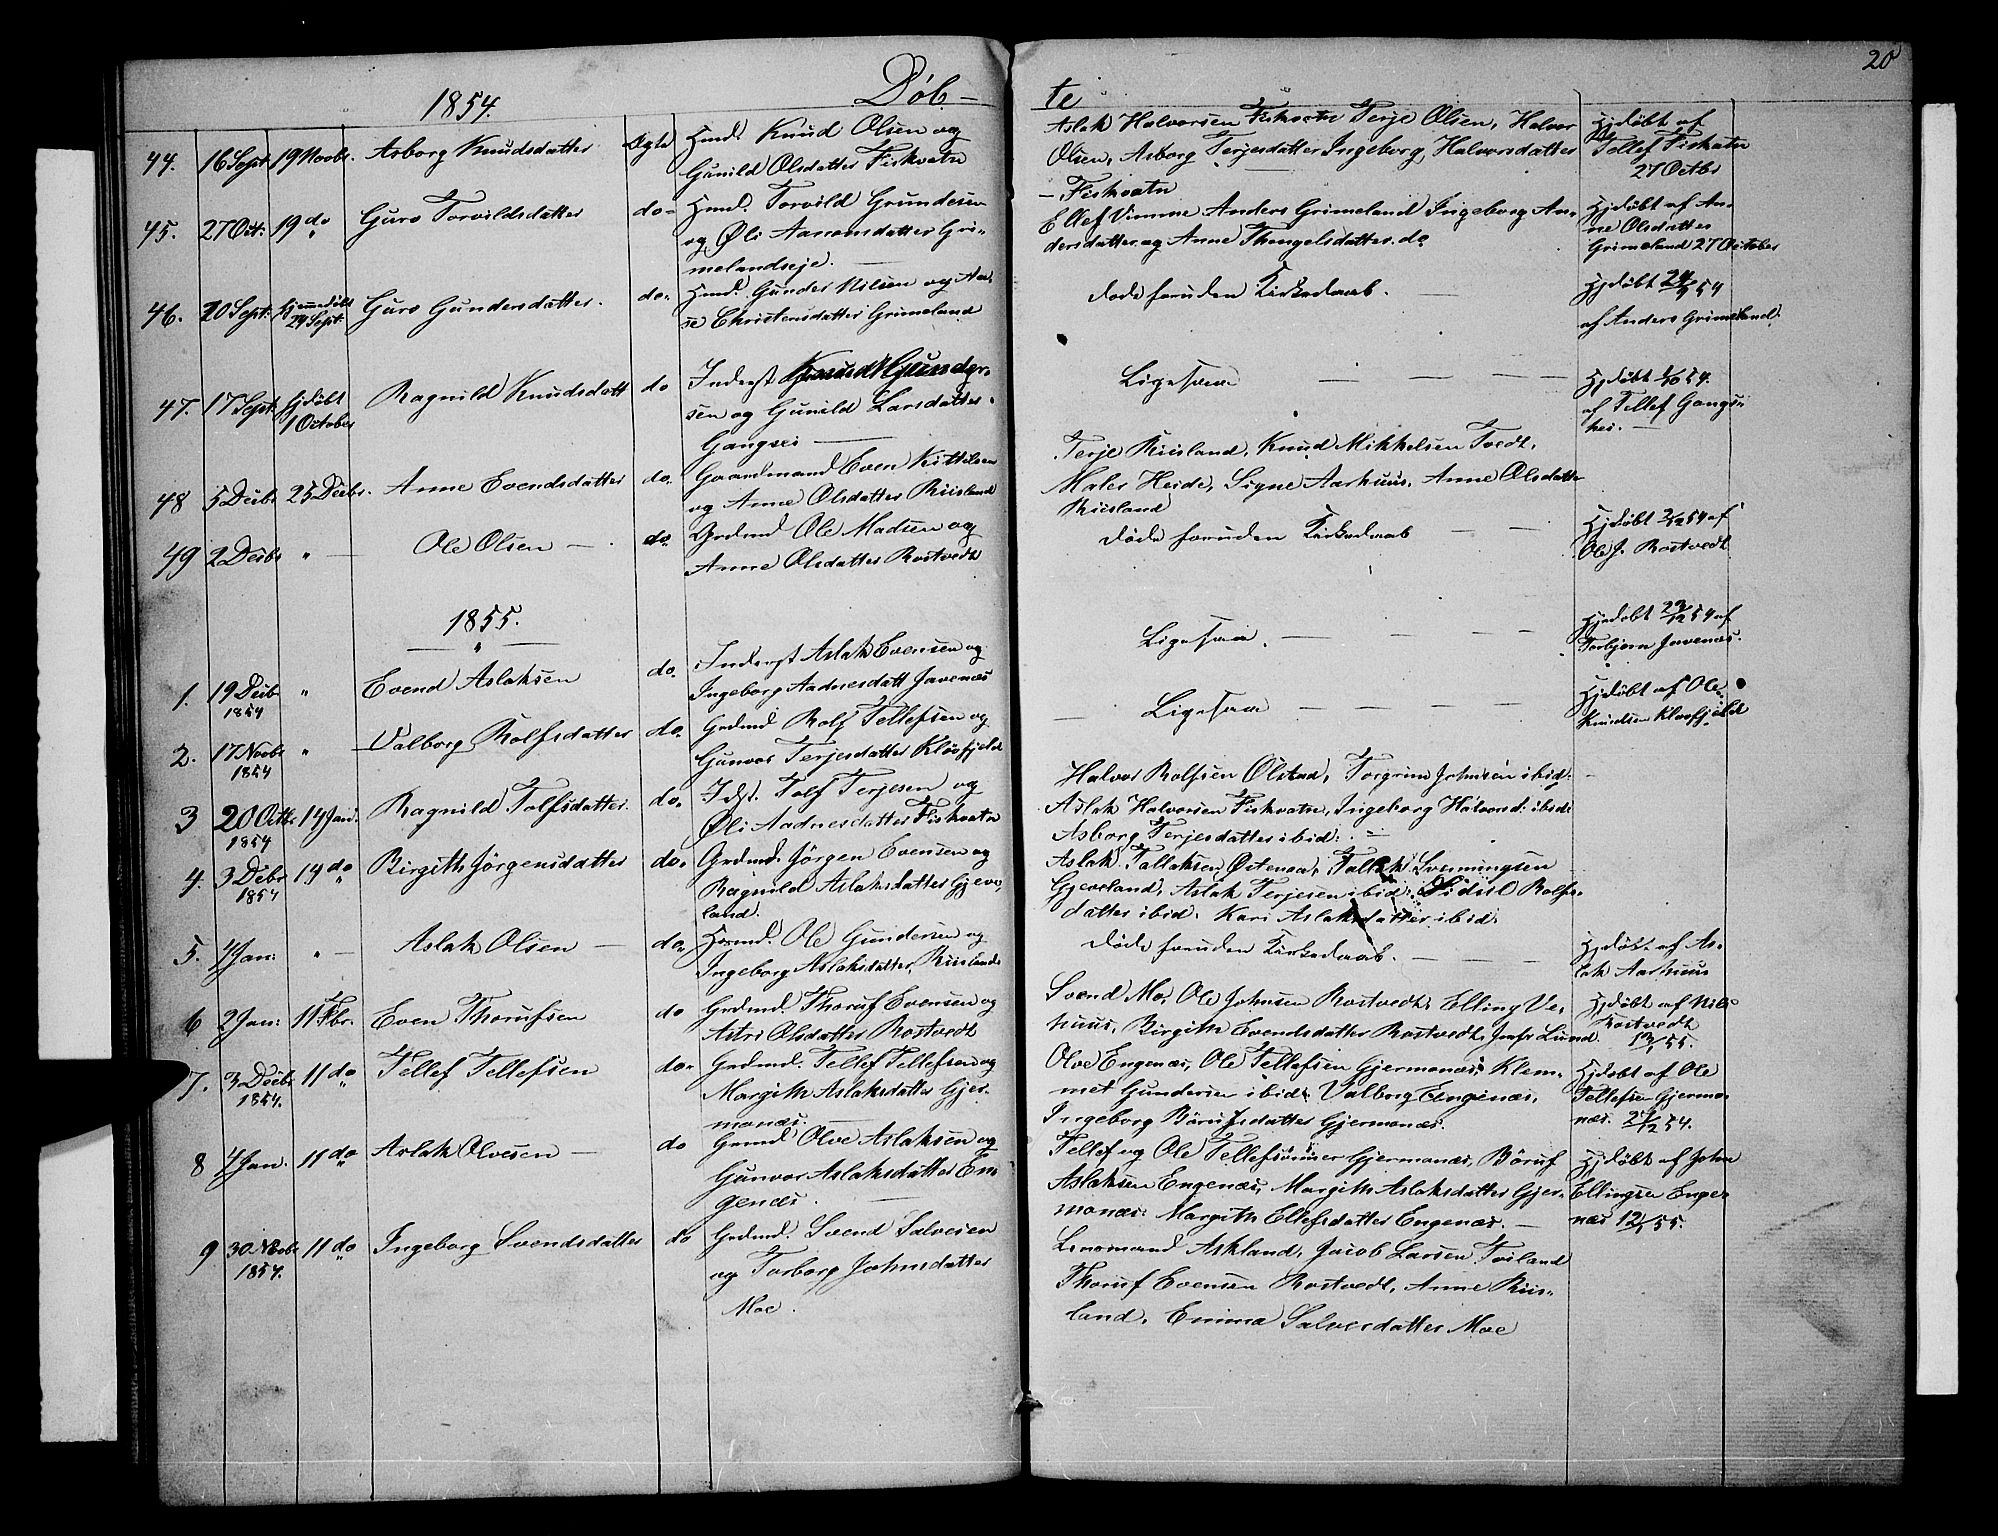 20
Døb-
te
1854.
44. 16 Sept. 19 Novbr. Asborg Knudsdatter Ægte Hmd. Knud Olsen og
Gunild Olsdatter Fiskvatn
Aslak Halvorsen Fiskvatn Terje Olsen, Halvor
Olsen, Asborg Terjesdatter Ingeborg Halvorsdatter
- Fiskvatn
Hjdøbt af
Tellef Fiskvatn
27 Octbr
45. 27 Oct: 19 do Guro Torvildsdatter do- Hmd. Torvild Gundersen
og Øli Aanonsdatter Gri-
melandseje.
Ellef Vimme Anders Grimeland Ingeborg An-
dersdatter og Anne Thengelsdatter do
Hjdøbt af An-
ne Olsdatter
Grimeland 27 October
46. 20 Sept: Hjemmedøbt
24 Sept. Guro Gundersdatter. do- Hmd. Gunder Nilsen og Aa-
se Christensdatter Grimeland
døde foruden Kirkedaab.
Hjdøbt 24/9 54
af Anders Grimeland.
47. 17 Sept. Hjdøbt
1 October Ragnild Knudsdatt do Inderst Knud Gunder-
sen og Gunild Larsdatter
Gangsei
Ligesaa
Hjdøbt 1/10 54.
af Tellef Gangs-
hei.
48 5 Decbr 25 Decbr. Anne Evendsdatter do. Gaardmand Even Kittelsen
og Anne Olsdatter Riisland
Terje Riisland, Knud Mikkelsen Tvedt,
Maler Heide, Signe Aarhuus, Anne Olsdatter
Riisland
49 2 Decbr " - Ole Olsen - do. Grdmd Ole Madsen og
Anne Olsdatter Rostvedt
døde foruden Kirkedaab
Hjdøbt 3/12 54 af
Ole J. Rostvedt
1855.
1. 19 Decbr
1854 " Evend Aslaksen do. Inderst Aslak Evensen og
Ingeborg Aadnesdatt Javenæs
Ligesaa.
Hjdøbt 29/12 54 af
Torbjørn Javenæs.
2. 17 Novbr
1854 " Valborg Rolfsdatter do. Grdmd Rolf Tellefsen og
Gunvor Terjesdatter Kløvfjeld
Ligesaa
Hjdøbt af Ole
Knudsen Kløvfjeld
3 20 Octbr
1854 14 Jan. Ragnild Tolfsdatter. do. Idst. Tolf Terjesen og
Øli Aadnesdatter Fiskvatn
Halvor Rolfsen Ølstad, Torgrim Johnsen ibid.
Aslak Halvorsen Fiskvatn, Ingeborg Halvorsd: ibid:
Asborg Terjesdatter ibid:
4. 3 Debr
1854 14 do Birgith Jørgensdatter do. Grdmd. Jørgen Evensen og
Ragnild Aslaksdatter Gjeve-
land.
Aslak Tallaksen Østenaa, Tallak Svenningsen
Gjeveland, Aslak Terjesen ibid: Sidsel Rolfs-
datter ibid. Kari Aslaksdatter ibid.
5. 4 Jan: " - Aslak Olsen - do. Hsmd. Ole Gundersen og
Ingeborg Aslaksdatter, Riisland
døde foruden Kirkedaab.
Hjdøbt af As-
lak Aarhuus
6 2 Jan: 11 Fbr. Even Thorufsen do Grdmd. Thoruf Evensen og
Astri Olsdatter Rostvedt
Svend Mo, Ole Johnsen Rostvedt, Elling Ve-
huus, Birgith Evendsdatter Rostvedt, Jmfr Lund
Hjdøbt af Nils
Rostvedt
13/1 55.
7. 3 Decbr
1854. 11 do Tellef Tellefsen do. Grdmd. Tellef Tellefsen og
Margith Aslaksdatter Gjer-
monæs.
Olve Engenæs, Ole Tellefsen Gjermonæs, Klem-
met Gundersen ibid: Valborg Engenæs,
Ingeborg Børufsdatter Gjermonæs.
Hjdøbt af Ole
Tellefsen Gjermo-
næs. 21/12 54.
8 4 Jan. 11 do Aslak Olvesen - do Grmd. Olve Aslaksen og
Gunvor Aslaksdatter En-
genæs.
Tellef og Ole Tellefsønner Gjermonæs, Børuf
Aslaksen Engenæs, Margith Aslaksdatter Gjer-
monæs: Margith Ellefsdatter Engenæs. -
Hjdøbt af John
Ellingsen Enge-
næs 12/1 55.
9 30 Novbr
1854. 11 do Ingeborg Svendsdatter do Grdmd. Svend Salvesen
og Torborg Johnsdatter
Moe.
Lensmand Askland, Jacob Larsen Toiland
Thoruf Evensen Rostvedt, Anne Riis-
land, Emma Salvesdatter Moe